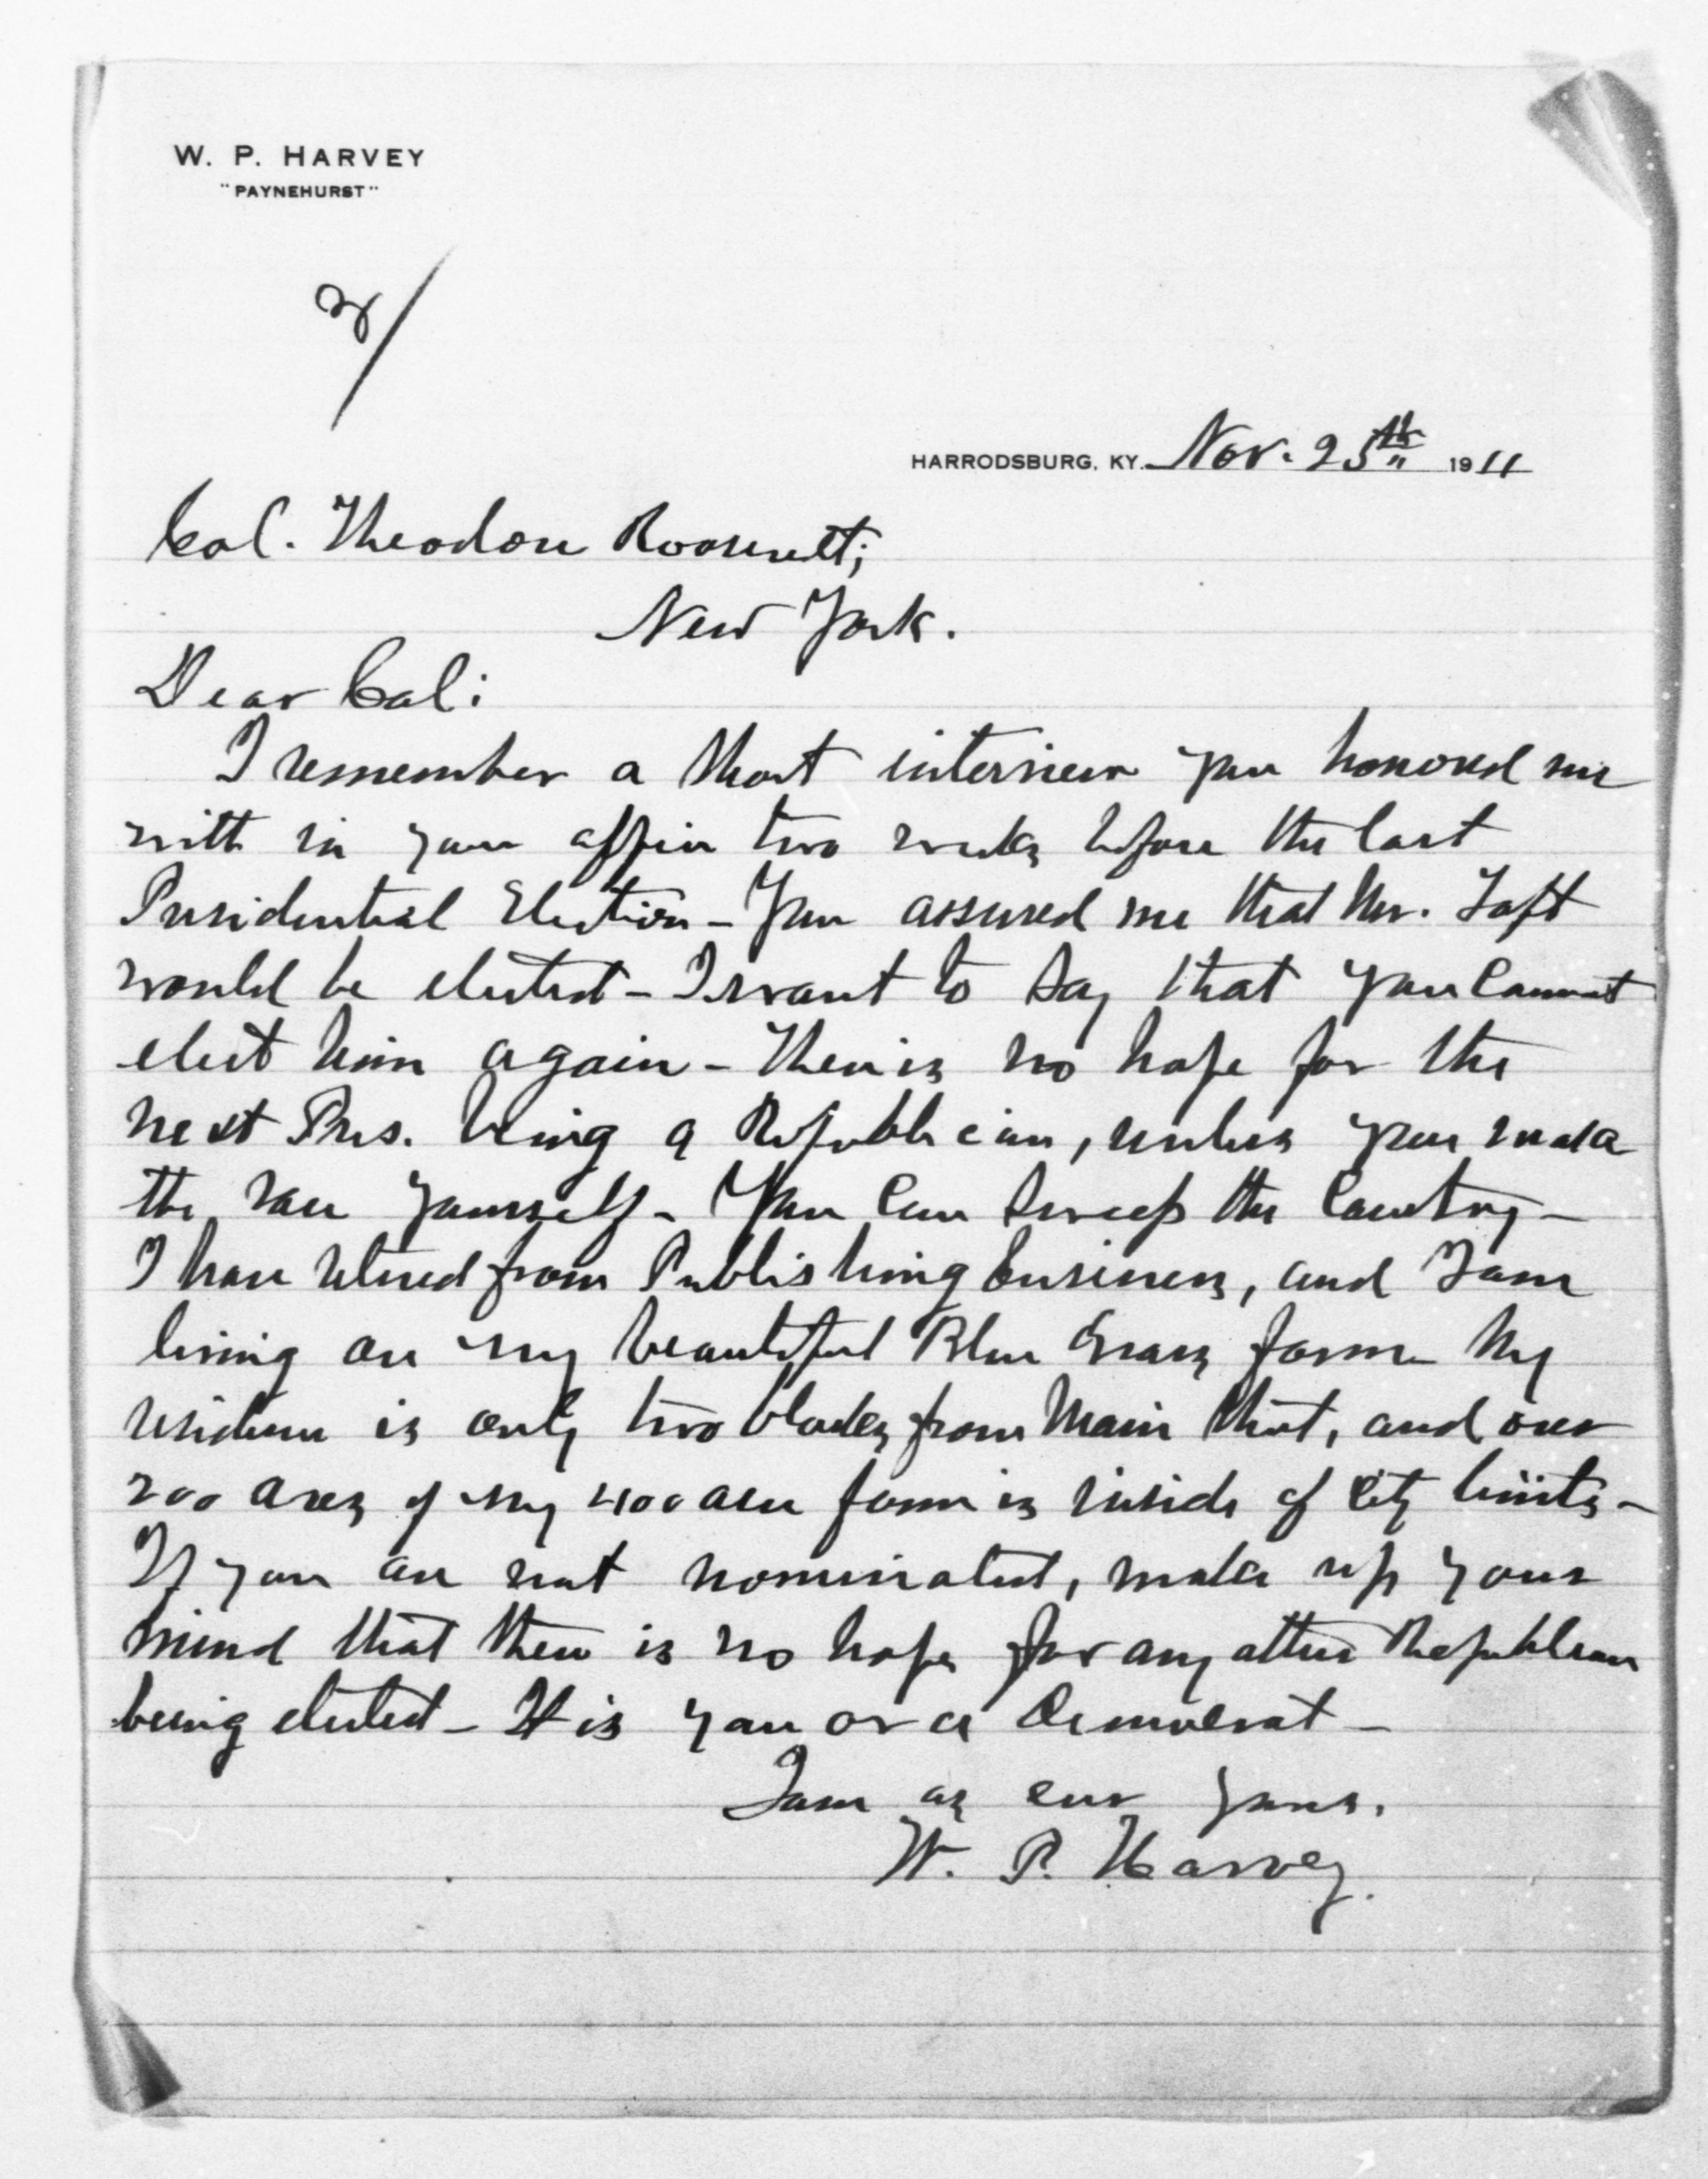 W. P. HARVEY
"PAYNEHURST"
HARRODSBURG, KY. Nov. 25th 1911
Col. Theodore Roosevelt;
New York.
Dear Col:
I remember a short interview you honored me
with in your office two weeks before the last
Presidential Election - You assured me that Mr. Taft
would be elected - I want to say that you cannot
elect him again - There is no hope for the
next Pres. being a Republican, unless you make
the race yourself - You can sweep the Country -
I have retired from Publishing business, and I am
living on my beautiful Blue Grass farm My
residence is only two blocks from Main Street, and over
200 acres of my 400 acre farm is inside of city limits -
If you are not nominated, make up your
mind that there is no hope for any other Republican
being elected - It is you or a Democrat -
I am as ever yours.
W. P. Harvey.